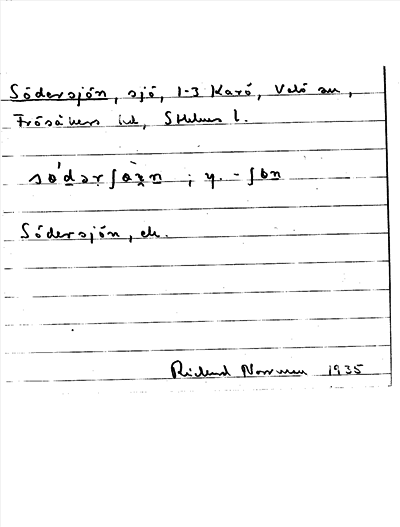 Södersjön, sjö, 1-3 Karö, Vetö sn,
Frösåkers hd, Sthlms l.
södərʃön ; y. - ʃön
Södersjön, ek.
Rickard Norrman 1935